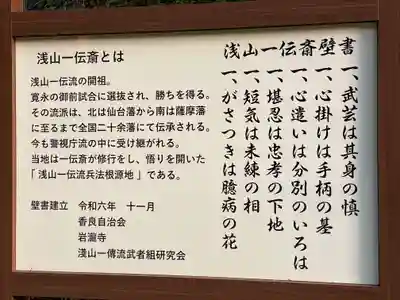 浅山一伝斎壁書
一、武芸は其身の慎
一、心掛けは手柄の墓
一、心遣いは分別のいろは
一、堪忍は忠孝の下地
一、短気は未練の相
一、がさつきは臆病の花
浅山一伝斎とは
浅山一伝流の開祖。
寛永の御前試合に選抜され、勝ちを得る。
その流派は、北は仙台藩から南は薩摩藩
に至るまで全国二十余藩にて伝承される。
今も警視庁流の中に受け継がれる。
当地は一伝斎が修行をし、悟りを開いた
「浅山一伝流兵法根源地」である。
壁書建立 令和六年 十一月
香良自治会
岩瀧寺
淺山一傳流武者組研究会